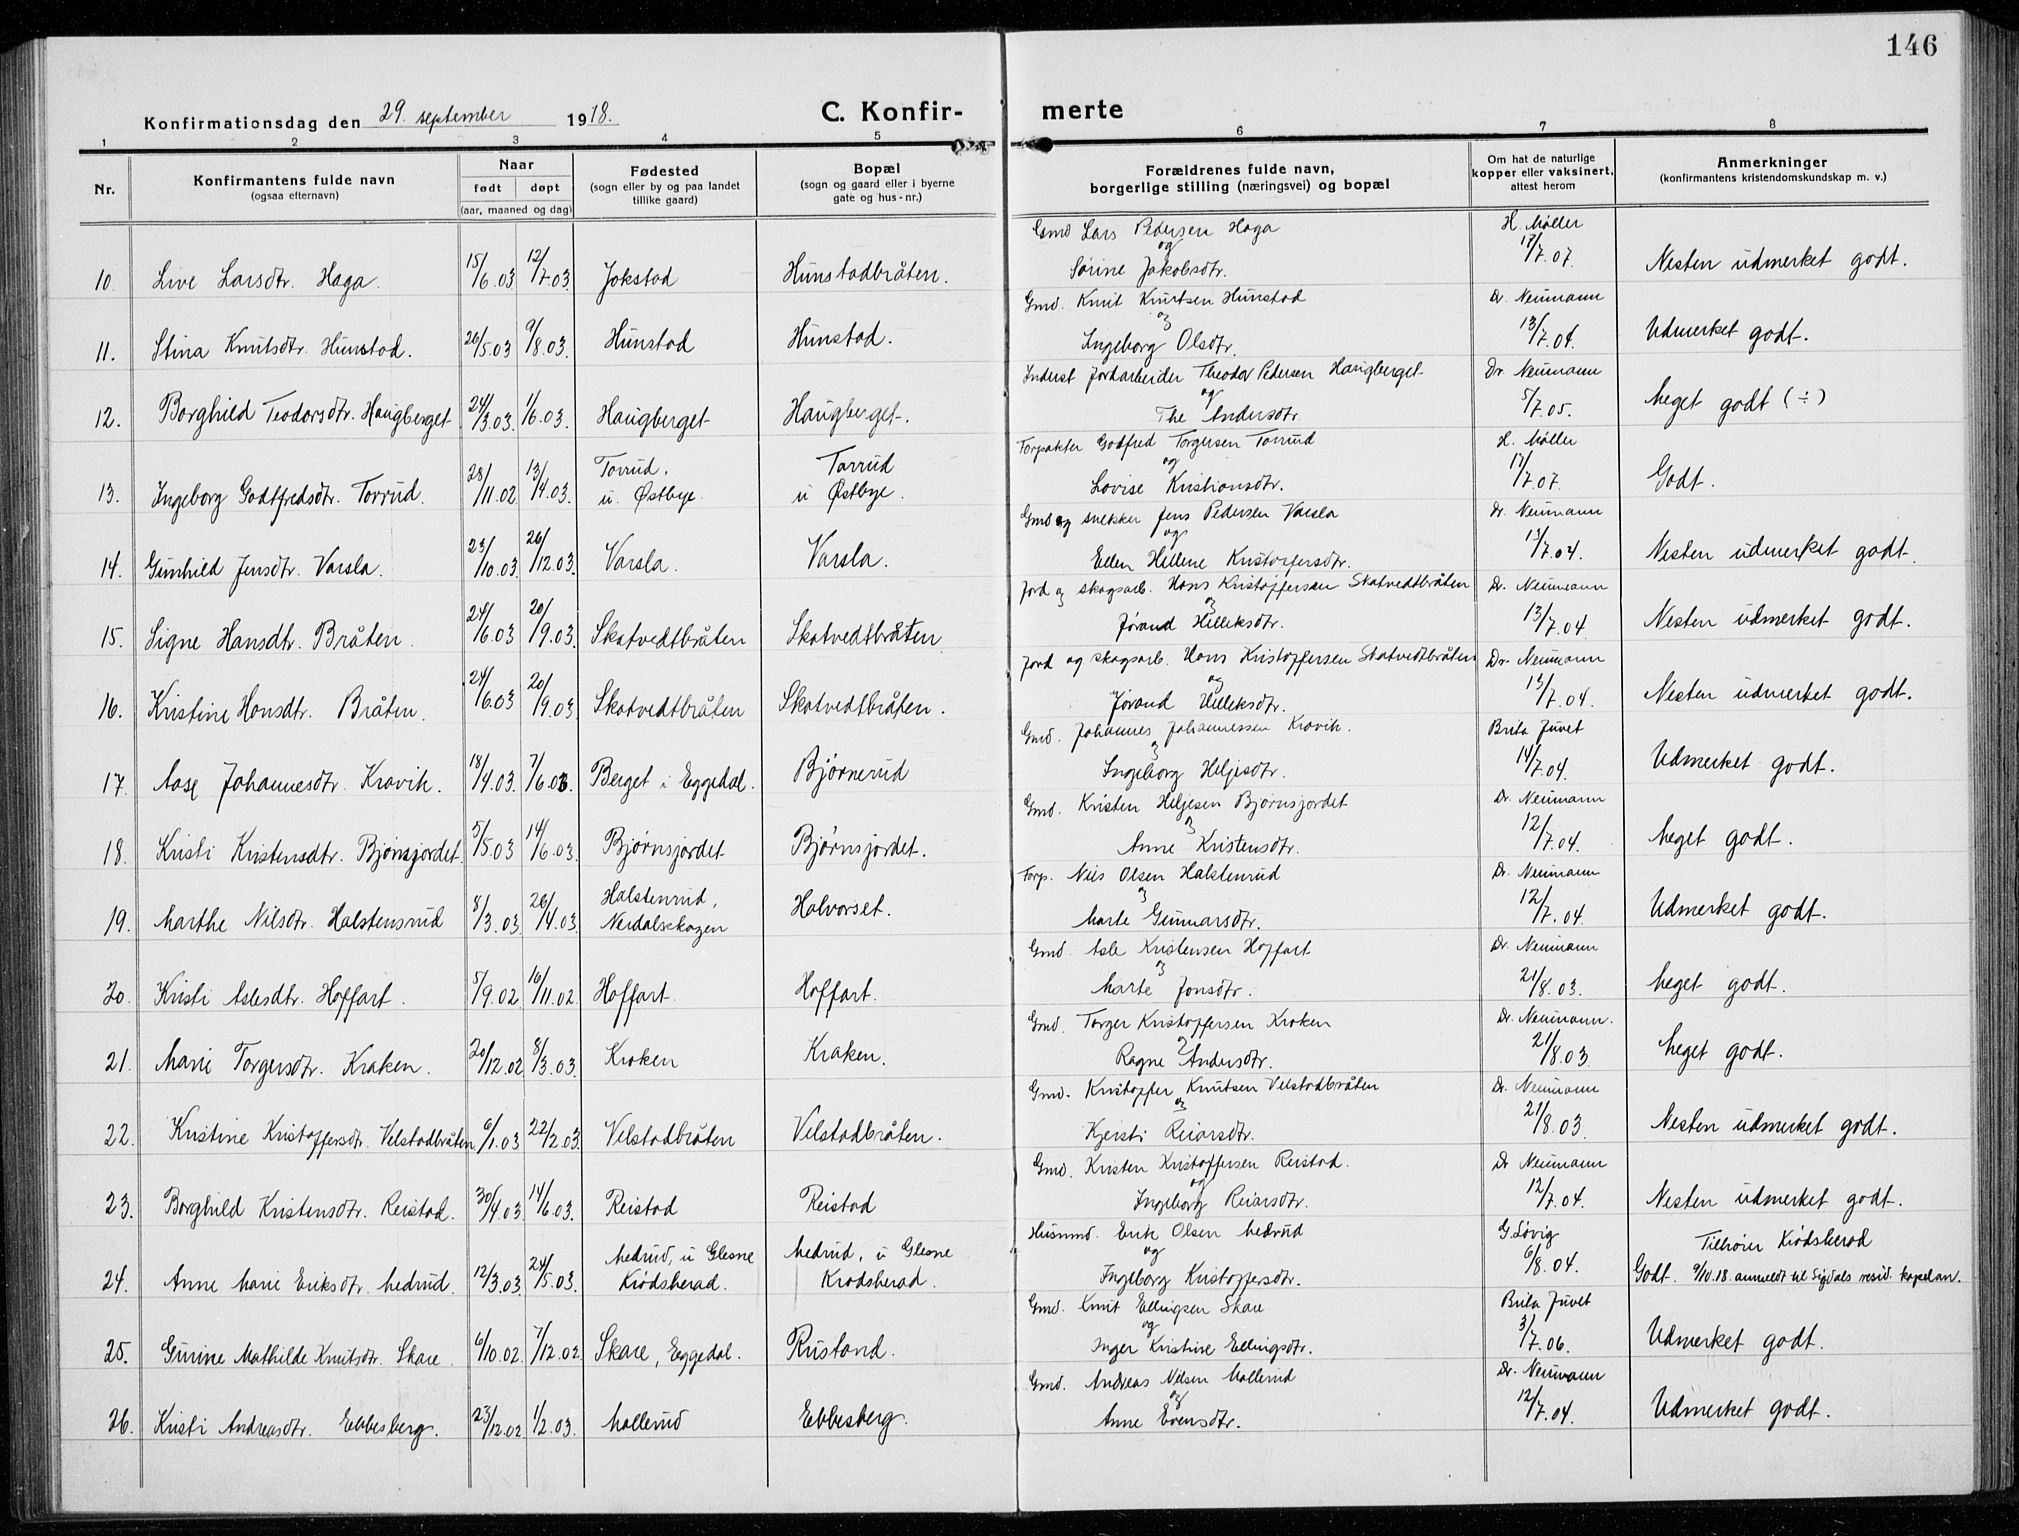 146
Konfirmationsdag den 29. september 1918.
C. Konfir- merte
1 2 3 4 5 6 7 8
Nr.
Konfirmantens fulde navn
(ogsaa efternavn)
Naar
født døpt
(aar, maaned og dag)
Fødested
(sogn eller by og paa landet
tillike gaard)
Bopæl
(sogn og gaard eller i byerne
gate og hus-nr.)
Forældrenes fulde navn,
borgerlige stilling (næringsvei) og bopæl
Om hat de naturlige
kopper eller vaksinert,
attest herom
Anmerkninger
(konfirmantens kristendomskundskap m. v.)
Gmd Lars Pedersen Haga H. Møller
og
10. Live Larsdtr. Haga. 15/6.03 12/7.03. Jokstad Hunstadbråten. Sørine Jakobsdtr. 17/7.07. Nesten udmerket godt.
Gmd. Knut Knutsen Hunstad Dr. Neumann
og
11. Stina Knutsdtr. Hunstad. 26/5.03 9/8.03. Hunstad Hunstad. Ingeborg Olsdtr. 13/7.04. Udmerket godt.
Inderst Jordarbeider Theodor Pedersen Haugberget Dr. Neumann
og
12. Borghild Teodorsdtr. Haugberget 24/3.03. 1/6.03. Haugberget Haugberget. The Andersdtr. 5/7.05. Meget godt (÷)
Forpakter Godfred Torgersen Torrud H. Møller
og
13. Ingeborg Godtfredsdtr. Torrud. 28/11.02 13/4.03. Torrud. u. Østbye. Torrud u Østbye. Lovise Kristiansdtr. 17/7.07. Godt.
Gmd og snekker Jens Pedersen Varsla Dr. Neumann
og
14. Gunhild Jensdtr. Varsla. 23/10.03. 26/12.03. Varsla. Varsla. Ellen Hellene Kristoffersdtr. 13/7.04. Nesten udmerket godt.
Jord og skogsarb. Hans Kristoffersen Skatvedtbråten Dr. Neumann
og
15. Signe Hansdtr. Bråten. 24/6.03 20/9.03. Skatvedtbråten Skatvedtbråten. Jørand Hilleksdtr. 13/7.04. Nesten udmerket godt.
Jord og skogsarb. Hans Kristoffersen Skatvedtbråten Dr. Neumann
og
16. Kristine Hansdtr. Bråten. 24/6.03 20/9.03. Skatvedtbråten Skatvedtbråten. Jørand Hilleksdtr. 13/7.04. Nesten udmerket godt.
Gmd. Johannes Johannessen Kravik. Brita Juvet
og
17. Aase Johannesdtr. Kravik. 18/4.03. 7/6.03. Berget i Eggedal. Bjørnerud Ingeborg Heljesdtr. 14/7.04. Udmerket godt.
Gmd. Kristen Heljesen Bjørnsjordet Dr. Neumann
og
18. Kristi Kristensdtr. Bjønsjordet. 5/5.03 14/6.03. Bjørnsjordet Bjørnsjordet. Anne Kristensdtr. 12/7.04. Meget godt.
Forp. Nils Olsen Halstenrud Dr. Neumann
og
19. Marthe Nilsdtr. Halstensrud 8/3.03. 26/4.03. Halstenrud, Nerdalsskogen Halvorset. Marte Gunnarsdtr. 12/7.04. Udmerket godt.
Gmd. Asle Kristensen Hoffart Dr. Neumann
og
20. Kristi Aslesdtr. Hoffart. 5/9.02. 16/11.02. Hoffart. Hoffart. Marte Jonsdtr. 21/8.03. Meget godt.
Gmd. Torger Kristoffersen Kroken Dr. Neumann.
og
21. Marie Torgersdtr. Kraken. 20/12.02 8/3.03. Kroken Kraken. Ragne Andersdtr. 21/8.03. Meget godt.
Gmd. Kristoffer Knutsen Velstadbråten Dr. Neumann
og
22. Kristine Kristoffersdtr. Velstadbråten. 6/1.03 22/2.03. Velstadbråten Velstadbråten. Kjersti Reiarsdtr. 21/8.03. Nesten udmerket godt.
Gmd. Kristen Kristoffersen Reistad. Dr Neumann
og
23. Borghild Kristensdtr. Reistad. 30/4.03. 14/6.03. Reistad Reistad Ingeborg Reiarsdtr. 12/7.04. Nesten udmerket godt.
Husmd. Erik Olsen Medrud G. Løvig Tilhører Krødsherad
og
24. Anne Marie Eriksdtr. Medrud. 12/3.03. 24/5.03. Medrud, u Glesne Krødsherad. Medrud, u Glesne Krødsherad. Ingeborg Kristoffersdtr. 6/8.04. Godt. 9/10.18. anmeldt til Sigdals resid. kapelan.
Gmd. Knut Ellingsen Skare Brita Juvet
og
25. Gurine Mathilde Knutsdtr. Skare. 6/10.02. 7/12.02 Skare, Eggedal. Rustand. Inger Kristine Ellingsdtr. 3/7.06. Udmerket godt.
Gmd. Andreas Nilsen Mollerud Dr. Neumann
og
26. Kristi Andreasdtr. Ebbesberg. 23/12.02 1/2.03. Mollerud Ebbesberg. Anne Evensdtr. 12/7.04. Udmerket godt.